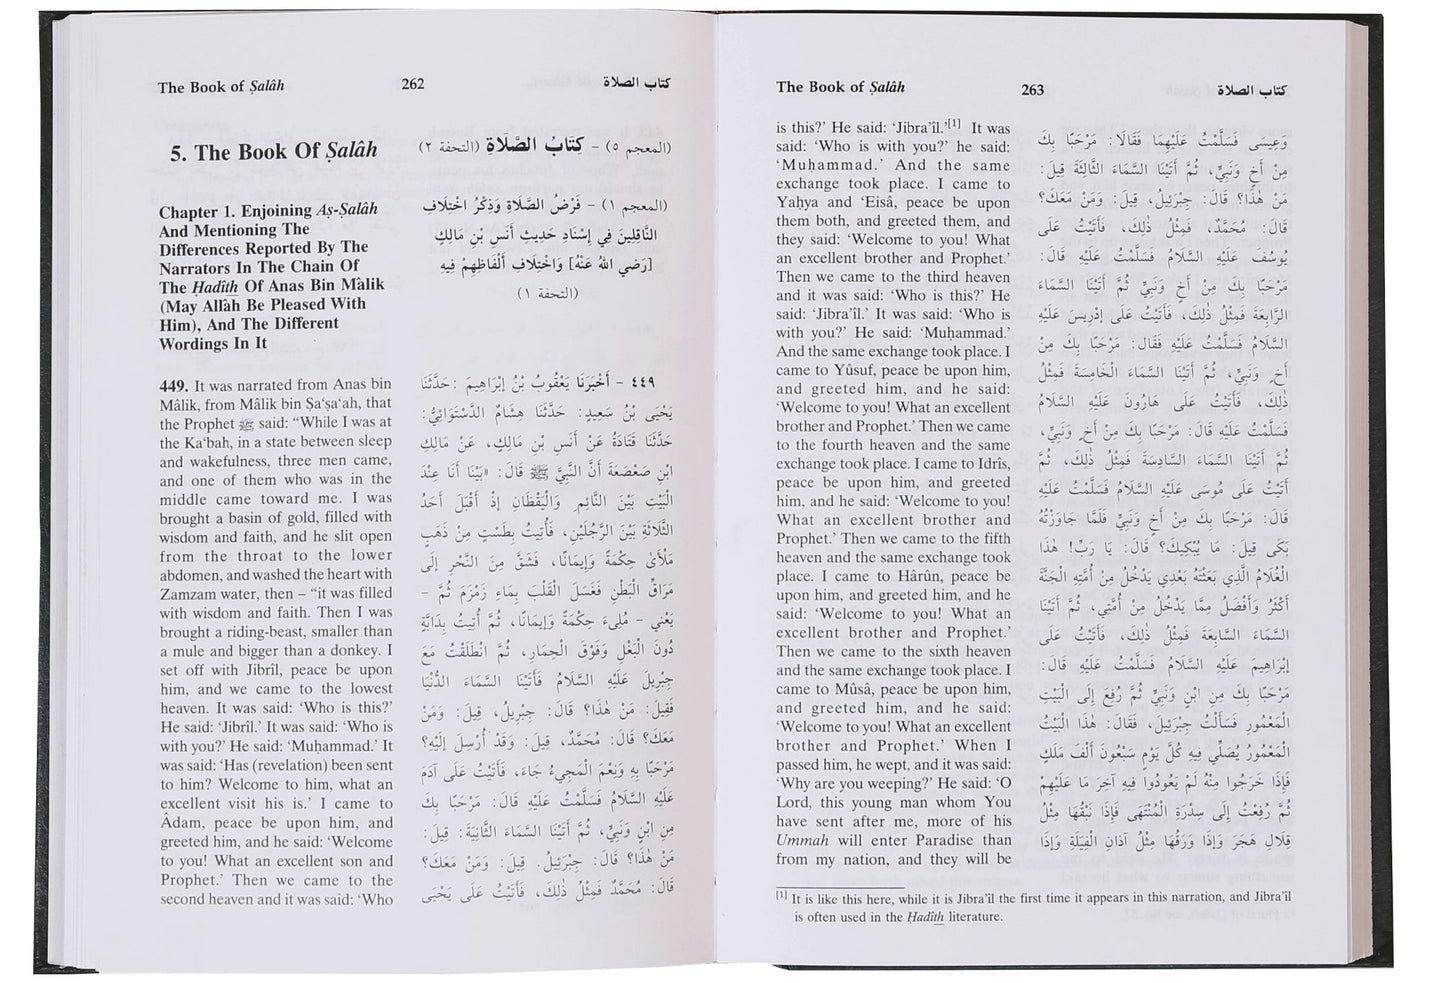 The Book of Ṣalâh 262 كتاب الصلاة
5. The Book Of Ṣalâh
Chapter 1. Enjoining Aṣ-Ṣalâh
And Mentioning The
Differences Reported By The
Narrators In The Chain Of
The Ḥadîth Of Anas Bin Mâlik
(May Allâh Be Pleased With
Him), And The Different
Wordings In It
449. It was narrated from Anas bin
Mâlik, from Mâlik bin Ṣa‘ṣa‘ah, that
the Prophet ﷺ said: “While I was at
the Ka‘bah, in a state between sleep
and wakefulness, three men came,
and one of them who was in the
middle came toward me. I was
brought a basin of gold, filled with
wisdom and faith, and he slit open
from the throat to the lower
abdomen, and washed the heart with
Zamzam water, then – “it was filled
with wisdom and faith. Then I was
brought a riding-beast, smaller than
a mule and bigger than a donkey. I
set off with Jibrîl, peace be upon
him, and we came to the lowest
heaven. It was said: ‘Who is this?’
He said: ‘Jibrîl.’ It was said: ‘Who is
with you?’ He said: ‘Muḥammad.’ It
was said: ‘Has (revelation) been sent
to him? Welcome to him, what an
excellent visit his is.’ I came to
Âdam, peace be upon him, and
greeted him, and he said: ‘Welcome
to you! What an excellent son and
Prophet.’ Then we came to the
second heaven and it was said: ‘Who
(المعجم ٥) - كِتَابُ الصَّلَاةِ (التحفة ٢)
(المعجم ١) - فَرْضُ الصَّلَاةِ وَذِكْرُ اخْتِلَافِ
النَّاقِلِينَ فِي إِسْنَادِ حَدِيثِ أَنَسِ بْنِ مَالِكٍ
[رَضِيَ اللهُ عَنْهُ] وَاخْتِلَافِ أَلْفَاظِهِمْ فِيهِ
(التحفة ١)
٤٤٩ - أَخْبَرَنَا يَعْقُوبُ بْنُ إِبْرَاهِيمَ: حَدَّثَنَا
يَحْيَى بْنُ سَعِيدٍ: حَدَّثَنَا هِشَامٌ الدَّسْتَوَائِيُّ:
حَدَّثَنَا قَتَادَةُ عَنْ أَنَسِ بْنِ مَالِكٍ، عَنْ مَالِكِ
ابْنِ صَعْصَعَةَ أَنَّ النَّبِيَّ ﷺ قَالَ: «بَيْنَا أَنَا عِنْدَ
الْبَيْتِ بَيْنَ النَّائِمِ وَالْيَقْظَانِ إِذْ أَقْبَلَ أَحَدُ
الثَّلَاثَةِ بَيْنَ الرَّجُلَيْنِ، فَأُتِيتُ بِطَسْتٍ مِنْ ذَهَبٍ
مَلْأَى حِكْمَةً وَإِيمَانًا، فَشَقَّ مِنَ النَّحْرِ إِلَى
مَرَاقِّ الْبَطْنِ فَغَسَلَ الْقَلْبَ بِمَاءِ زَمْزَمَ ثُمَّ -
يَعْنِي - مُلِىءَ حِكْمَةً وَإِيمَانًا، ثُمَّ أُتِيتُ بِدَابَّةٍ
دُونَ الْبَغْلِ وَفَوْقَ الْحِمَارِ، ثُمَّ انْطَلَقْتُ مَعَ
جِبْرِيلَ عَلَيْهِ السَّلَامُ فَأَتَيْنَا السَّمَاءَ الدُّنْيَا
فَقِيلَ: مَنْ هٰذَا؟ قَالَ: جِبْرِيلُ، قِيلَ: وَمَنْ
مَعَكَ؟ قَالَ: مُحَمَّدٌ، قِيلَ: وَقَدْ أُرْسِلَ إِلَيْهِ؟
مَرْحَبًا بِهِ وَنِعْمَ الْمَجِيءُ جَاءَ، فَأَتَيْتُ عَلَى آدَمَ
عَلَيْهِ السَّلَامُ فَسَلَّمْتُ عَلَيْهِ قَالَ: مَرْحَبًا بِكَ
مِنِ ابْنٍ وَنَبِيٍّ، ثُمَّ أَتَيْنَا السَّمَاءَ الثَّانِيَةَ: قِيلَ:
مَنْ هٰذَا؟ قَالَ: جِبْرَئِيلُ. قِيلَ: وَمَنْ مَعَكَ؟
قَالَ: مُحَمَّدٌ فَمِثْلُ ذٰلِكَ، فَأَتَيْتُ عَلَى يَحْيَى
The Book of Ṣalâh 263 كتاب الصلاة
is this?’ He said: ‘Jibra’îl.’[1] It was
said: ‘Who is with you?’ he said:
‘Muḥammad.’ And the same
exchange took place. I came to
Yaḥya and ‘Eisâ, peace be upon
them both, and greeted them, and
they said: ‘Welcome to you! What
an excellent brother and Prophet.’
Then we came to the third heaven
and it was said: ‘Who is this?’ He
said: ‘Jibra’îl.’ It was said: ‘Who is
with you?’ He said: ‘Muḥammad.’
And the same exchange took place. I
came to Yûsuf, peace be upon him,
and greeted him, and he said:
‘Welcome to you! What an excellent
brother and Prophet.’ Then we came
to the fourth heaven and the same
exchange took place. I came to Idris,
peace be upon him, and greeted
him, and he said: ‘Welcome to you!
What an excellent brother and
Prophet.’ Then we came to the fifth
heaven and the same exchange took
place. I came to Hârûn, peace be
upon him, and greeted him, and he
said: ‘Welcome to you! What an
excellent brother and Prophet.’
Then we came to the sixth heaven
and the same exchange took place. I
came to Mûsâ, peace be upon him,
and greeted him, and he said:
‘Welcome to you! What an excellent
brother and Prophet.’ When I
passed him, he wept, and it was said:
‘Why are you weeping?’ He said: ‘O
Lord, this young man whom You
have sent after me, more of his
Ummah will enter Paradise than
from my nation, and they will be
وَعِيسَى فَسَلَّمْتُ عَلَيْهِمَا فَقَالَا: مَرْحَبًا بِكَ
مِنْ أَخٍ وَنَبِيٍّ، ثُمَّ أَتَيْنَا السَّمَاءَ الثَّالِثَةَ قِيلَ:
مَنْ هٰذَا؟ قَالَ: جِبْرَئِيلُ، قِيلَ: وَمَنْ مَعَكَ؟
قَالَ: مُحَمَّدٌ، فَمِثْلُ ذٰلِكَ، فَأَتَيْتُ عَلَى
يُوسُفَ عَلَيْهِ السَّلَامُ فَسَلَّمْتُ عَلَيْهِ قَالَ:
مَرْحَبًا بِكَ مِنْ أَخٍ وَنَبِيٍّ ثُمَّ أَتَيْنَا السَّمَاءَ
الرَّابِعَةَ فَمِثْلُ ذٰلِكَ، فَأَتَيْتُ عَلَى إِدْرِيسَ عَلَيْهِ
السَّلَامُ فَسَلَّمْتُ عَلَيْهِ فَقَالَ: مَرْحَبًا بِكَ مِنْ
أَخٍ وَنَبِيٍّ، ثُمَّ أَتَيْنَا السَّمَاءَ الْخَامِسَةَ فَمِثْلُ
ذٰلِكَ، فَأَتَيْتُ عَلَى هَارُونَ عَلَيْهِ السَّلَامُ
فَسَلَّمْتُ عَلَيْهِ قَالَ: مَرْحَبًا بِكَ مِنْ أَخٍ وَنَبِيٍّ،
ثُمَّ أَتَيْنَا السَّمَاءَ السَّادِسَةَ فَمِثْلُ ذٰلِكَ، ثُمَّ
أَتَيْتُ عَلَى مُوسَى عَلَيْهِ السَّلَامُ فَسَلَّمْتُ عَلَيْهِ
قَالَ: مَرْحَبًا بِكَ مِنْ أَخٍ وَنَبِيٍّ فَلَمَّا جَاوَزْتُهُ
بَكَى قِيلَ: مَا يُبْكِيكَ؟ قَالَ: يَا رَبِّ! هٰذَا
الْغُلَامُ الَّذِي بَعَثْتَهُ بَعْدِي يَدْخُلُ مِنْ أُمَّتِهِ الْجَنَّةَ
أَكْثَرُ وَأَفْضَلُ مِمَّا يَدْخُلُ مِنْ أُمَّتِي، ثُمَّ أَتَيْنَا
السَّمَاءَ السَّابِعَةَ فَمِثْلُ ذٰلِكَ، فَأَتَيْتُ عَلَى
إِبْرَاهِيمَ عَلَيْهِ السَّلَامُ فَسَلَّمْتُ عَلَيْهِ قَالَ:
مَرْحَبًا بِكَ مِنِ ابْنٍ وَنَبِيٍّ ثُمَّ رُفِعَ إِلَى الْبَيْتِ
الْمَعْمُورِ فَسَأَلْتُ جِبْرَئِيلَ، فَقَالَ: هٰذَا الْبَيْتُ
الْمَعْمُورُ يُصَلِّي فِيهِ كُلَّ يَوْمٍ سَبْعُونَ أَلْفَ مَلَكٍ
فَإِذَا خَرَجُوا مِنْهُ لَمْ يَعُودُوا فِيهِ آخِرَ مَا عَلَيْهِمْ
ثُمَّ رُفِعْتُ إِلَى سِدْرَةِ الْمُنْتَهَى فَإِذَا نَبْقُهَا مِثْلُ
قِلَالِ هَجَرٍ وَإِذَا وَرَقُهَا مِثْلُ آذَانِ الْفِيَلَةِ وَإِذَا
[1] It is like this here, while it is Jibra’îl the first time it appears in this narration, and Jibra’îl
is often used in the Ḥadîth literature.